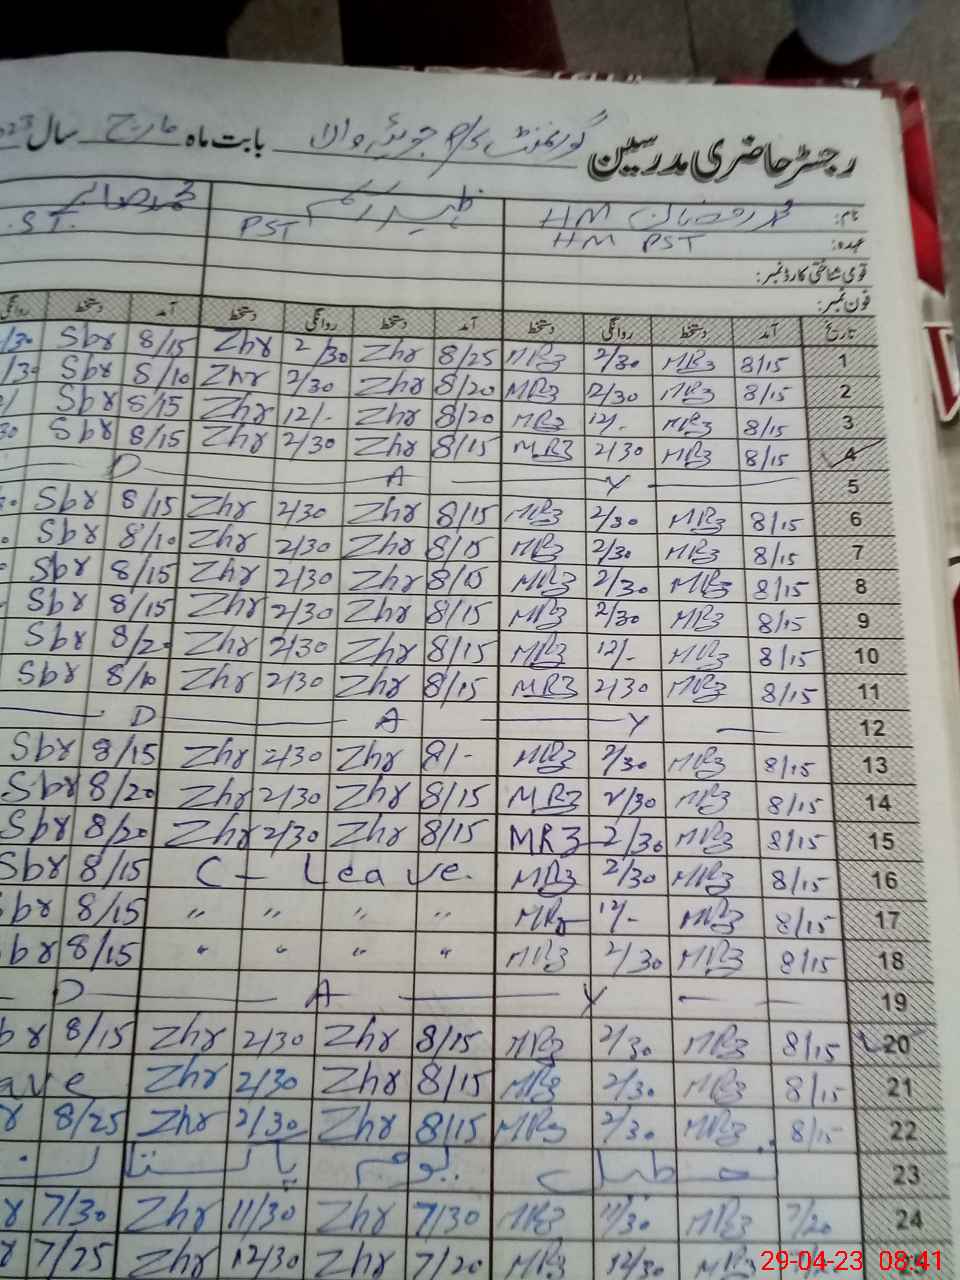 رجسٹر حاضری مدرسین گورنمنٹ بابت ماہ مارچ سال
نام: محمد رمضان HM ظہیر
عہدہ: HM PST PST S.T.
قومی شناختی کارڈ نمبر:
فون نمبر:
تاریخ آمد دستخط روانگی دستخط آمد دستخط روانگی دستخط آمد دستخط روانگی
1 8/15 MR3 2/30 MR3 8/25 Zhr 2/30 Zhr 8/15 Sbr /30
2 8/15 MR3 12/30 MR3 8/20 Zhr 2/30 Zhr 8/10 Sbr /30
3 8/15 MR3 12/- MR3 8/20 Zhr 12/- Zhr 8/15 Sbr
4 8/15 MR3 2/30 MR3 8/15 Zhr 2/30 Zhr 8/15 Sbr 30
5 D A Y
6 8/15 MR3 2/30 MR3 8/15 Zhr 2/30 Zhr 8/15 Sbr
7 8/15 MR3 2/30 MR3 8/15 Zhr 2/30 Zhr 8/10 Sbr
8 8/15 MR3 2/30 MR3 8/15 Zhr 2/30 Zhr 8/15 Sbr
9 8/15 MR3 2/30 MR3 8/15 Zhr 2/30 Zhr 8/15 Sbr
10 8/15 MR3 12/- MR3 8/15 Zhr 2/30 Zhr 8/20 Sbr
11 8/15 MR3 2/30 MR3 8/15 Zhr 2/30 Zhr 8/10 Sbr
12 D A Y
13 8/15 MR3 2/30 MR3 8/- Zhr 2/30 Zhr 8/15 Sbr
14 8/15 MR3 2/30 MR3 8/15 Zhr 2/30 Zhr 8/20 Sbr
15 8/15 MR3 2/30 MR3 8/15 Zhr 2/30 Zhr 8/20 Sbr
16 8/15 MR3 2/30 MR3 C - Leave. 8/15 Sbr
17 8/15 MR3 12/- MR3 " " " " 8/15 br
18 8/15 MR3 2/30 MR3 " " " " 8/15 br
19 D A Y
20 8/15 MR3 2/30 MR3 8/15 Zhr 2/30 Zhr 8/15 br
21 8/15 MR3 2/30 MR3 8/15 Zhr 2/30 Zhr ave
22 8/15 MR3 2/30 MR3 8/15 Zhr 2/30 Zhr 8/25 r
23 تعطیل یوم پاکستان
24 7/20 MR3 11/30 MR3 7/30 Zhr 11/30 Zhr 7/30 r
25 MR3 12/30 MR3 7/20 Zhr 12/30 Zhr 7/25 r
29-04-23 08:41